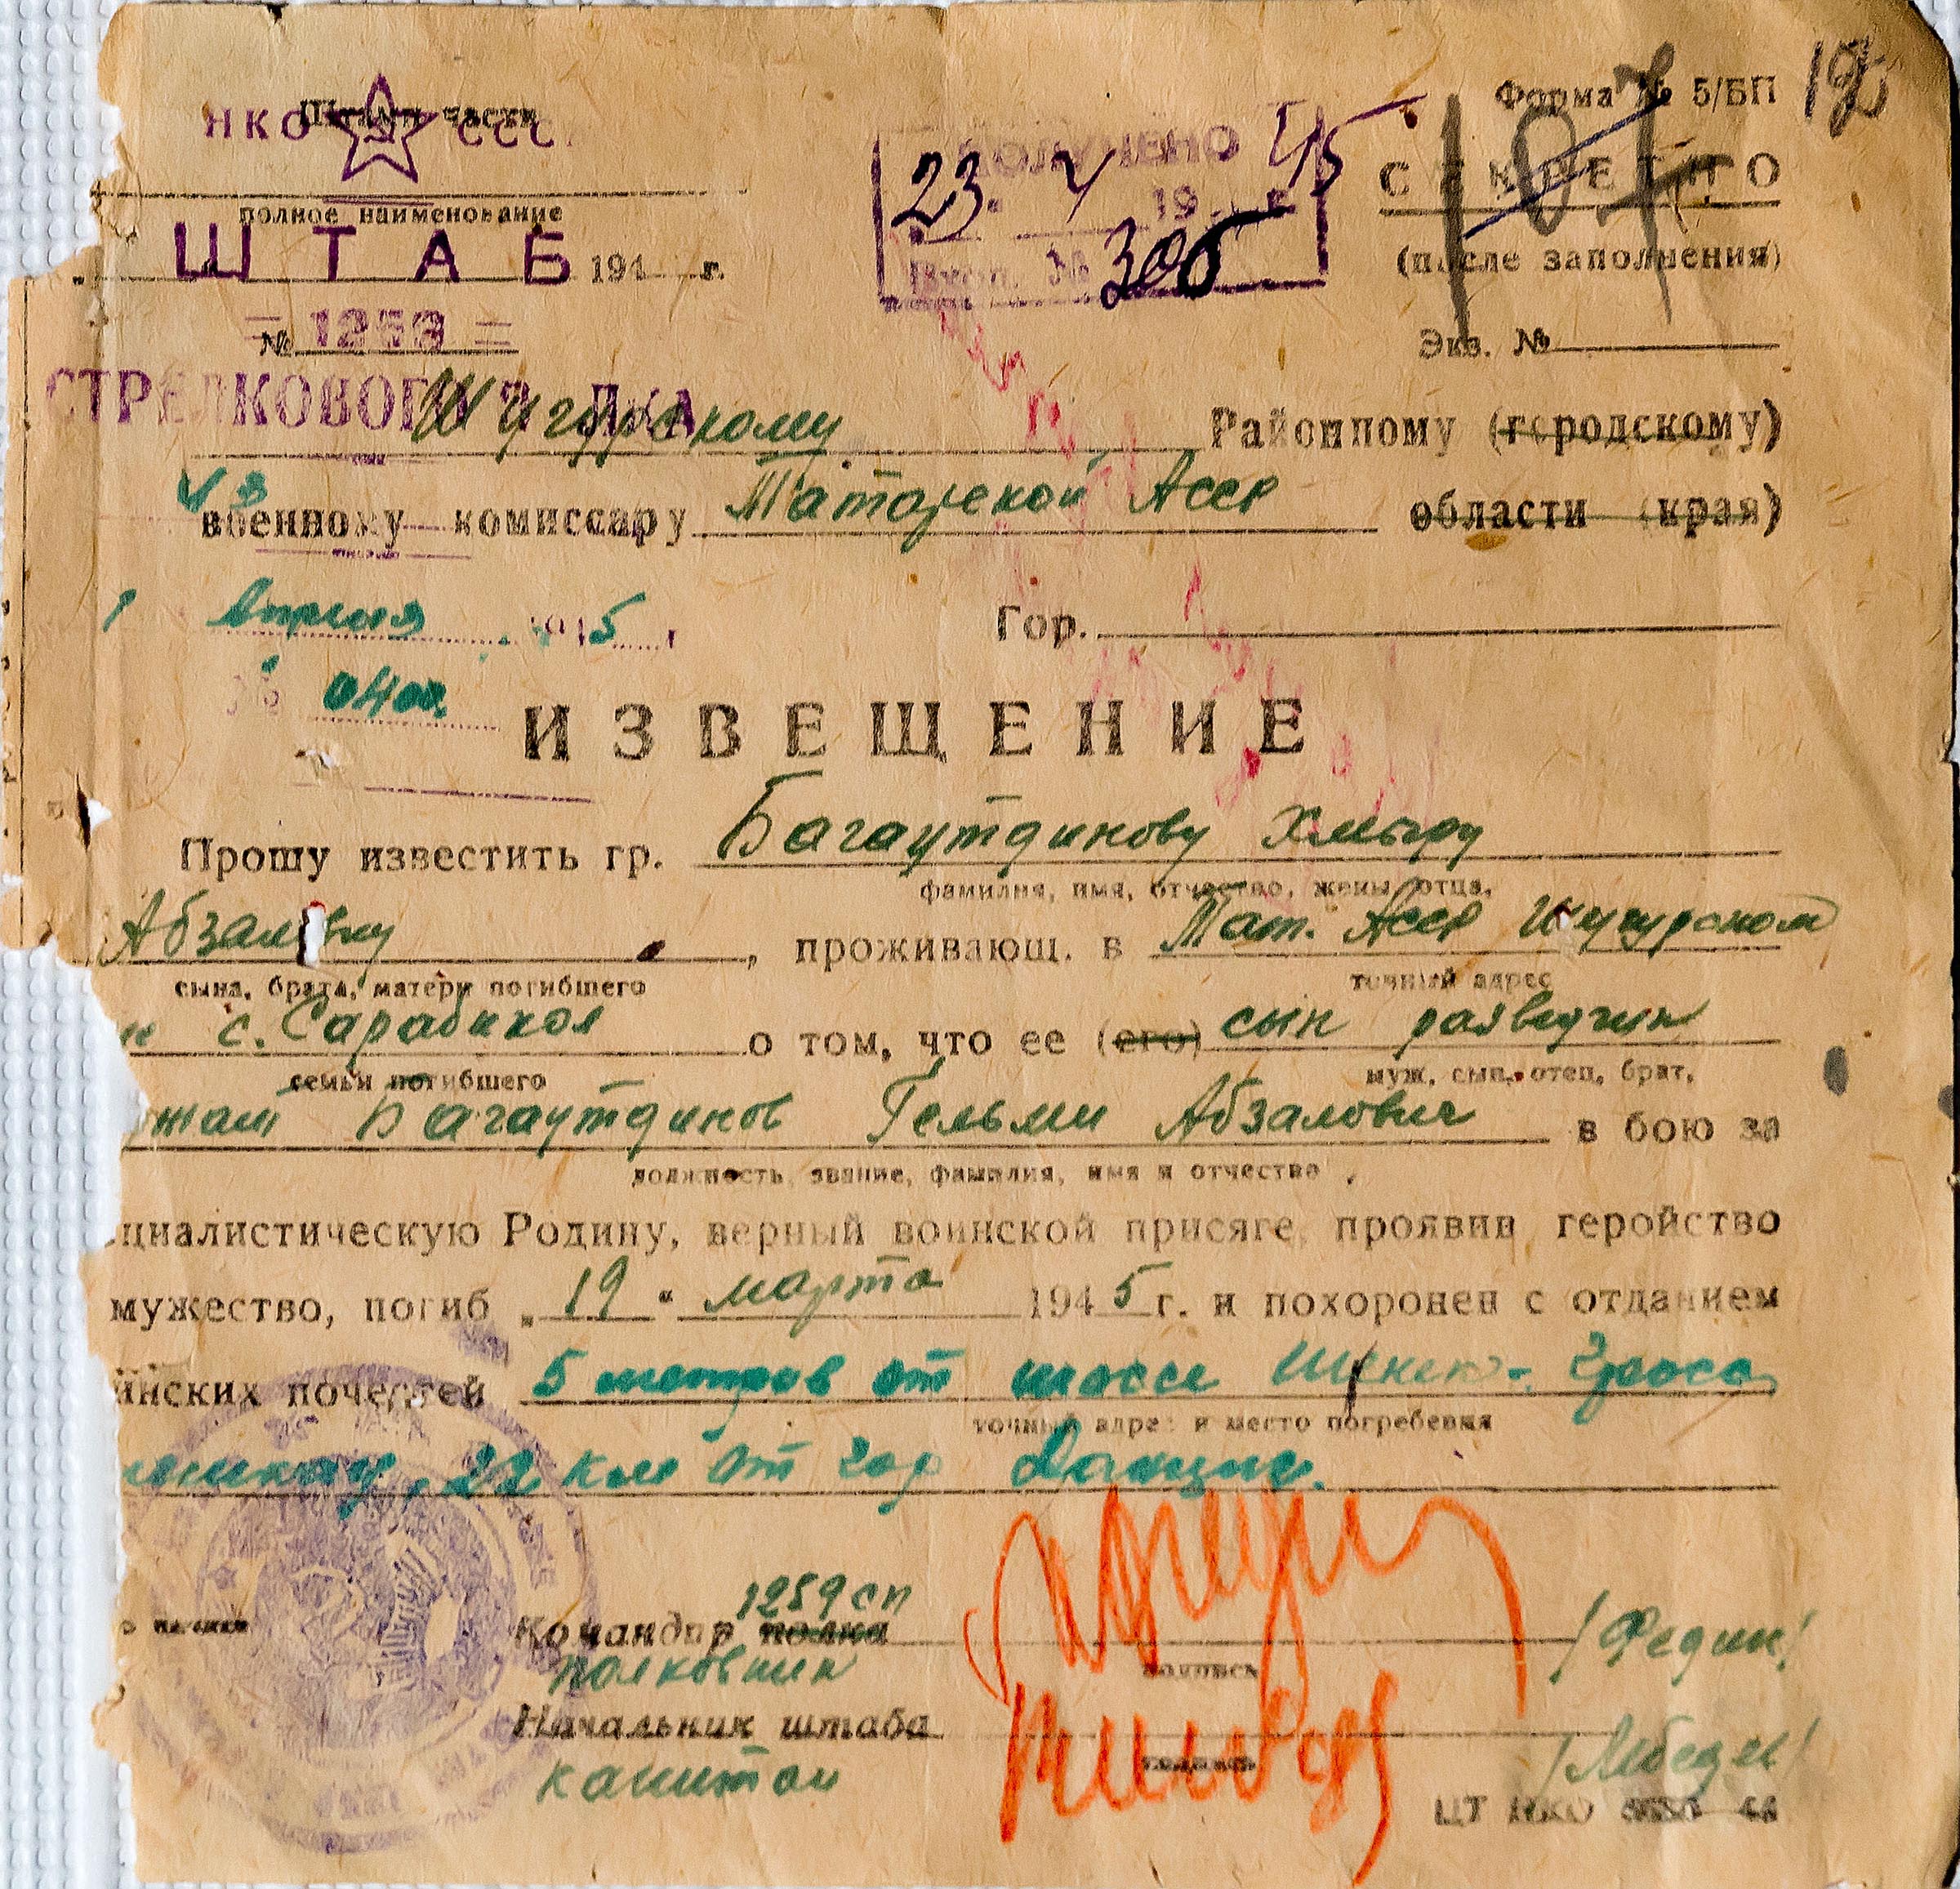 Форма № 5/БП
НКО СССР
Штамп части
ПОЛУЧЕНО
СЕКРЕТНО
107
23. 4 1945 г.
полное наименование
ШТАБ 194 г.
(после заполнения)
Вход. № 306
№ 1259
Экз. №
СТРЕЛКОВОГО ПОЛКА
Шугурскому Районному (городскому)
военному комиссару Татарской Асср области (края)
1 апреля 1945 г
Гор.
№ 0400.
ИЗВЕЩЕНИЕ
Прошу известить гр. Багаутдинову
фамилия, имя, отчество, жены, отца,
, проживающ. в Тат. Асср Шугурском
сына, брата, матери погибшего точный адрес
с. Сарабикол о том, что ее (его) сын разведчик
семьи погибшего муж, сын, отец, брат,
Багаутдинов Гельми Абзалович в бою за
должность, звание, фамилия, имя и отчество
циалистическую Родину, верный воинской присяге, проявив геройство
мужество, погиб „ 19 " марта 1945 г. и похоронен с отданием
инских почестей 5 метров от шоссе
точный адрес и место погребения
22 км от гор Данциг.
1259 сп
Командир полка /Федин/
полковник
подпись
Начальник штаба
капитан
подпись
ЦТ НКО